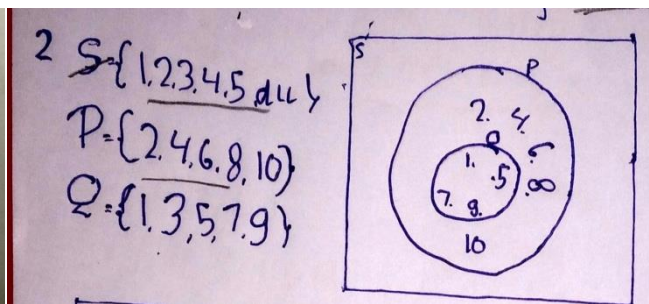 2 S={1,2,3,4,5 dll}
P={2,4,6,8,10}
Q={1,3,5,7,9}
S
P
2. 4.
Q 6.
1.
.5 .8
7. 9.
10